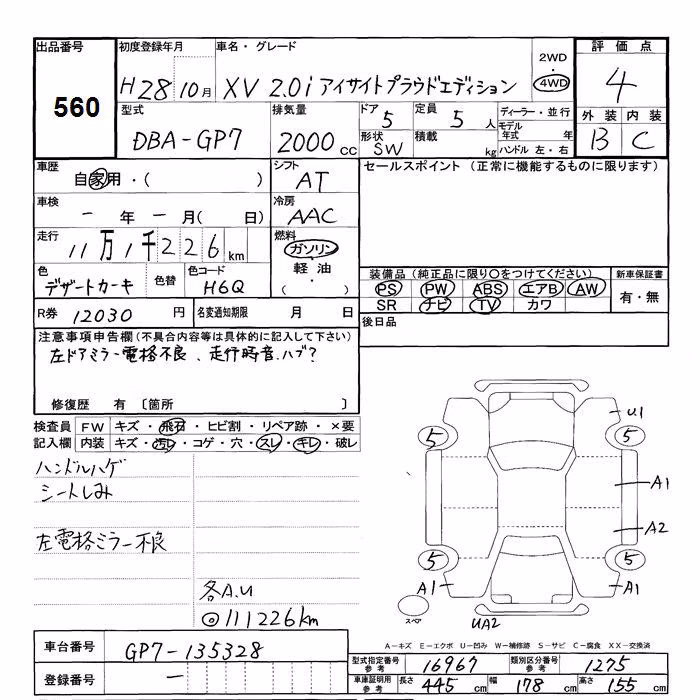 出品番号 初度登録年月 車名・グレード 評価点
560 H28 10月 XV 2.0i アイサイトプラウドエディション 2WD 4WD 4
型式 排気量 ドア 定員 ディーラー・並行 外装 内装
DBA-GP7 2000cc 5 5人 モデル年式 年 B C
形状 SW 積載 kg ハンドル 左・右
車歴 自家用・( ) シフト AT セールスポイント (正常に機能するものに限ります)
車検 ー年ー月( 日) 冷房 AAC
走行 11万1千226km 燃料 ガソリン
軽油
・( )
色 デザートカーキ 色替 色コード H6Q
装備品 (純正品に限り○をつけてください) 新車保証書
PS PW ABS エアB AW 有・無
SR ナビ TV カワ
R券 12030円 名変通知期限 月 日 後日品
注意事項申告欄(不具合内容等は具体的に記入して下さい)
左ドアミラー電格不良、走行時音.ハブ?
修復歴 有〔箇所 〕
検査員 FW キズ・飛石・ヒビ割・リペア跡・×要
記入欄 内装 キズ・汚レ・コゲ・穴・スレ・キレ・破レ
ハンドルハゲ
シートしみ
左電格ミラー不良
各A.U
◎111226km
U1
5 5
A1
A2
5 5
A1 A1
スペア
UA2
A-キズ E-エクボ U-凹み W-補修跡 S-サビ C-腐食 XX-交換済
車台番号 GP7-135328
登録番号 ー
型式指定番号 参考 16967 類別区分番号 参考 1275
車庫証明用 参考 長さ 445cm 幅 178cm 高さ 155cm